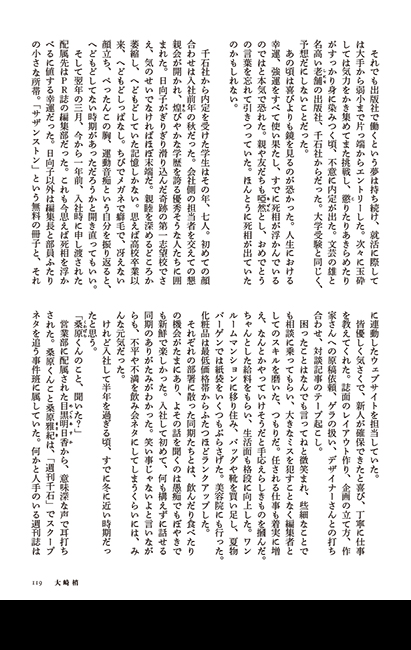 それでも出版社で働くという夢は持ち続け、就活に際して
は大手から弱小まで片っ端からエントリーした。次々に玉砕
しては気力をかき集めてまた挑戦し、懲りたりあきらめたり
がすっかり身に染みつく頃、不意に内定が出た。文芸の雄と
名高い老舗の出版社、千石社からだった。大学受験と同じく、
予想だにしないことだった。
あの頃は喜びよりも鏡を見るのが恐かった。人生における
幸運、強運をすべて使い果たし、すでに死相が浮かんでいる
のではと本気で恐れた。親や友だちも啞然とし、おめでとう
の言葉を忘れて引きつっていた。ほんとうに死相が出ていた
のかもしれない。
千石社から内定を受けた学生はその年、七人。初めての顔
合わせは入社前年の秋だった。会社側の担当者を交えての懇
親会が開かれ、煌びやかな学歴を誇る優秀そうな人たちに囲
まれた。日向子がぎりぎり滑り込んだ奇跡の第一志望校でさ
え、気のせいでなければほぼ末端だ。親睦を深めるどころか
萎縮し、へどもどしていた記憶しかない。思えば高校卒業以
来、へどもどしっぱなし。ちびでメガネで癖毛で、冴えない
顔立ち、ぺったんこの胸、運動音痴という自分を振り返ると、
へどもどしてない時期があっただろうかと開き直ってもいい。
そして翌年の三月、今から一年前、入社時に申し渡された
配属先はPR誌の編集部だった。これも今思えば死相を浮か
べるに値する幸運だった。日向子以外は編集長と部員ふたり
の小さな所帯。「サザンストン」という無料の冊子と、それ
に連動したウェブサイトを担当していた。
皆優しく気さくで、新人が確保できたと喜び、丁寧に仕事
を教えてくれた。誌面のレイアウト作り、企画の立て方、作
家さんへの原稿依頼、ゲラの扱い、デザイナーさんとの打ち
合わせ、対談記事のテープ起こし。
困ったことはなんでも言ってねと微笑まれ、些細なことで
も相談に乗ってもらい、大きなミスを犯すことなく編集者と
してのスキルを磨いた、つもりだ。任される仕事も着実に増
え、なんとかやっていけそうだと手応えらしきものを摑んだ。
ちゃんとした給料をもらい、生活面も格段に向上した。ワン
ルームマンションに移り住み、バッグや靴を買い足し、夏物
バーゲンでは紙袋をいくつもぶらさげた。美容院にも行った。
化粧品は最低価格帯からふたつほどランクアップした。
それぞれの部署に散った同期たちとは、飲んだり食べたり
の機会がたまにあり、よその話を聞くのは愚痴でもぼやきで
も新鮮で楽しかった。入社して初めて、何も構えずに話せる
同期のありがたみがわかった。笑い事じゃないよと言いなが
らも、不平や不満を飲み会ネタにしてしまうくらいには、み
んな元気だった。
けれど入社して半年を過ぎる頃、すでに冬に近い時期だっ
たと思う。
「桑原くんのこと、聞いた?」
営業部に配属された目黒明日香から、意味深な声で耳打ち
された。桑原くんこと桑原雅紀は、「週刊千石」でスクープ
ネタを追う事件班に属していた。何かと人手のいる週刊誌は
119 大崎梢